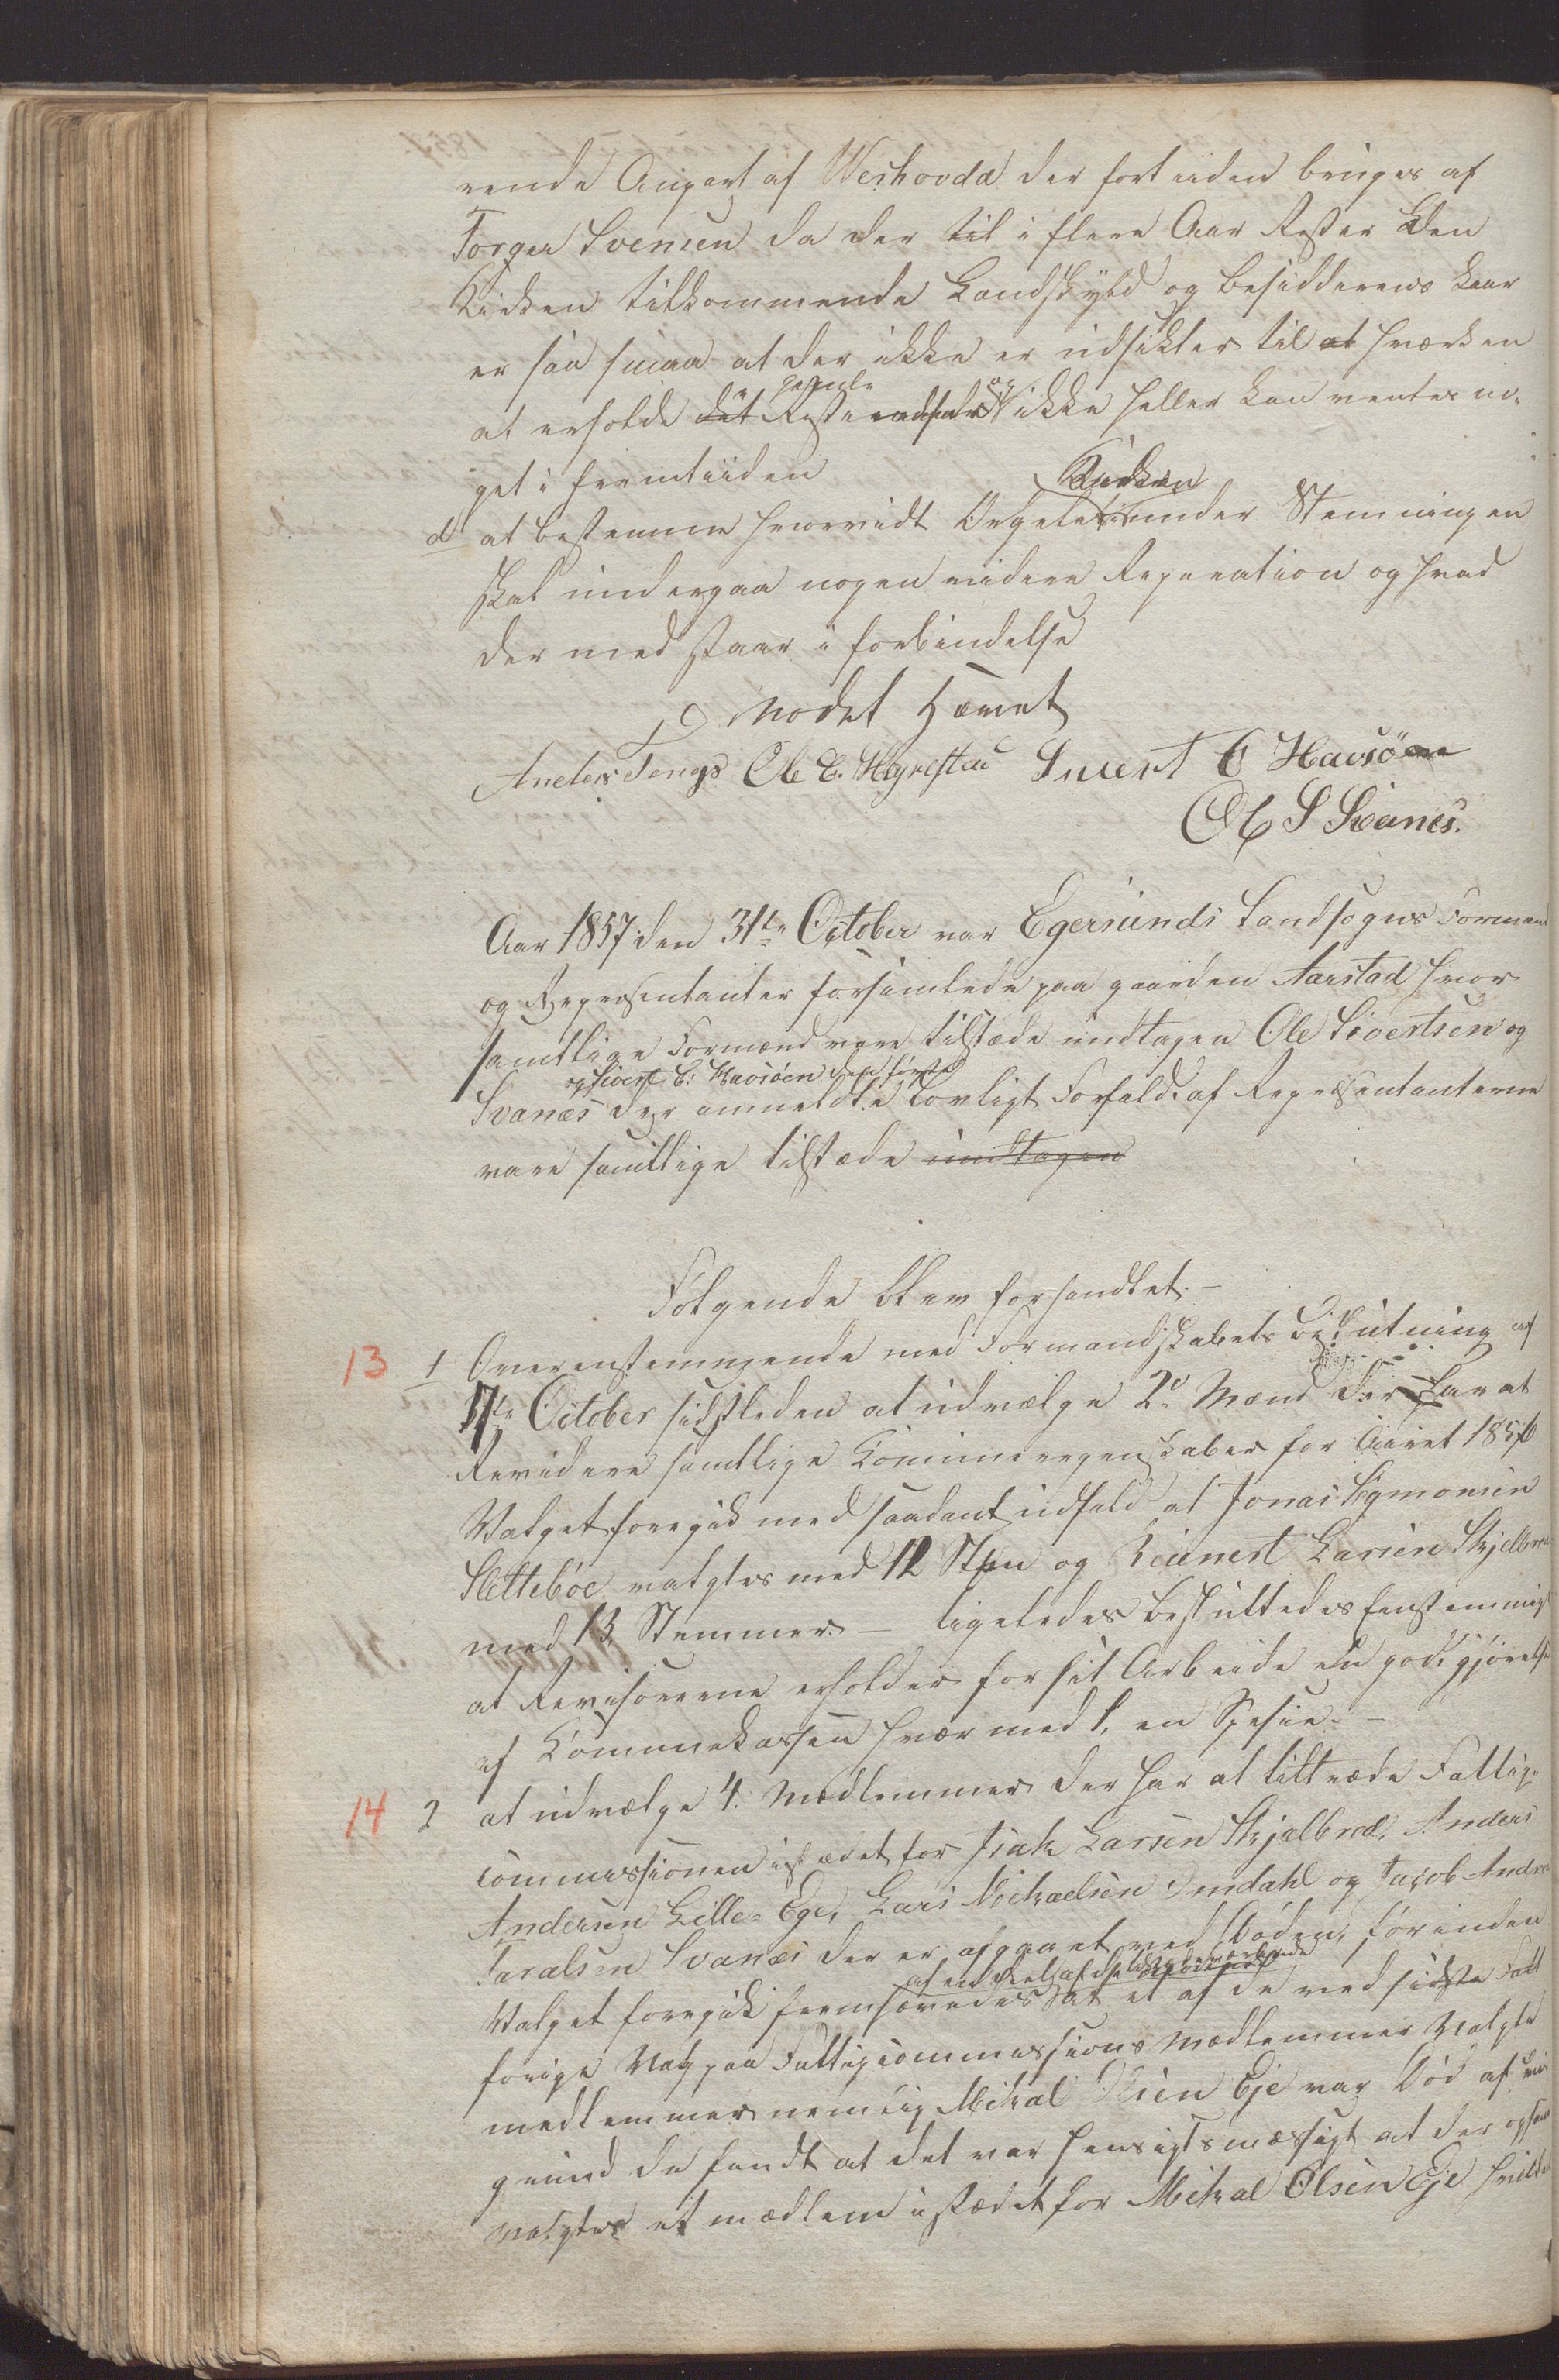 rende Anpart af Weshovda der fortiiden bruges af
Torger Svensen da der til i flere Aar Rester Den
Kirken tilkommende Landskyld og besidderens kaar
er saa smaa at der ikke er udsikter til at hverken
gamle og
at erholde det Reste ikke heller kan ventes no-
get i fremtiiden
Kirken
d at bestemme hvorvidt Orgelet under Stemningen
skal undergaa nogen videre Reparation og hvad
der med staar i forbindelse
Modet Hævet
Anders Tengs Ole E. Høgrestad Sivert E Havsøen
Ole S Svanes.
Aar 1857 den 31te October var Egersunds Landsogns Formænd
og Representanter forsamlede paa gaarden Aarstad hvor
samtlige Formænd vare tilstæde undtagen Ole Sivertsen og
og Sivert E: Havsøen den første
Svanæs der anmeldte Lovligt Forfald. af Representanterne
vare samtlige tilstæde undtagen
Følgende blev forhandlet. -
13 1 Overenstemmende med Formandskabets Beslutning af
17de October sidstleden at udvælge 2de Mænd der har at
Revidere samtlige Kommuneregenskaber for Aaret 1856
Valget foregik med saadant udfald at Jonas Sigmonsen
Slettebøe valgtes med 12 Stem og Reinert Larsen Skjelbred
med 13 Stemmer. - ligeledes besluttedes Eenstemmigt
at Revisorerne erholder for sit Arbeide en godtgjørelse
af Kommunekassen hver med 1, en Spesie. -
14 2 at udvælge 4. Medlemmer der har at tiltræde Fattig-
commissionen istædet for Isak Larsen Skjælbred, Anders
Andersen Lille-Ege, Lars Mickaelsen Omdahl og Jacob Andre
Taralsen Svanæs der er afgaaet ved Døden, førinden
af en deel af de tilstædeværende
Valget foregik fremhævedes at et af de ved sidste Fatt
forige Valg paa Fattigcommissions Medlemmer Valgte
medlemmer nemlig Mikal Olsen Eje var Død af
grund de fandt at det var hensigtsmæssigt at der ogsaa
valgtes et medlem istædet for Mikal Olsen Eje hvilke